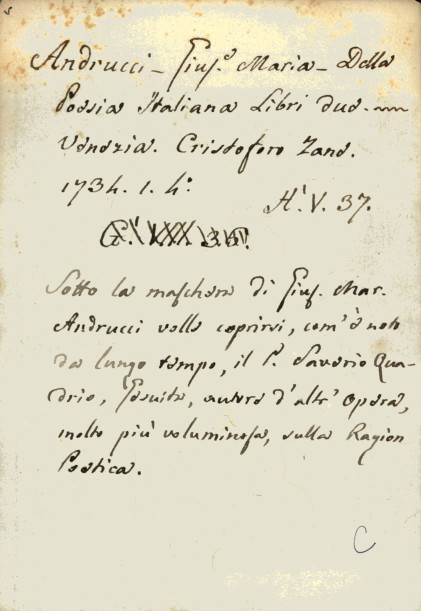 5
Andrucci - Giuſ.e Maria - Della
Poesia Italiana Libri due. —
Venezia. Cristoforo Zane.
1734. 1. 4.°
H.' V. 37.
Sotto la maſchera di Giuſ. Mar.
Andrucci volle coprirsi, com'è noto
da lungo tempo, il P. Saverio Qua-
drio, Gesuita, autore d'altr'Opera,
molto più voluminoſa, sulla Ragion
Poetica.
C